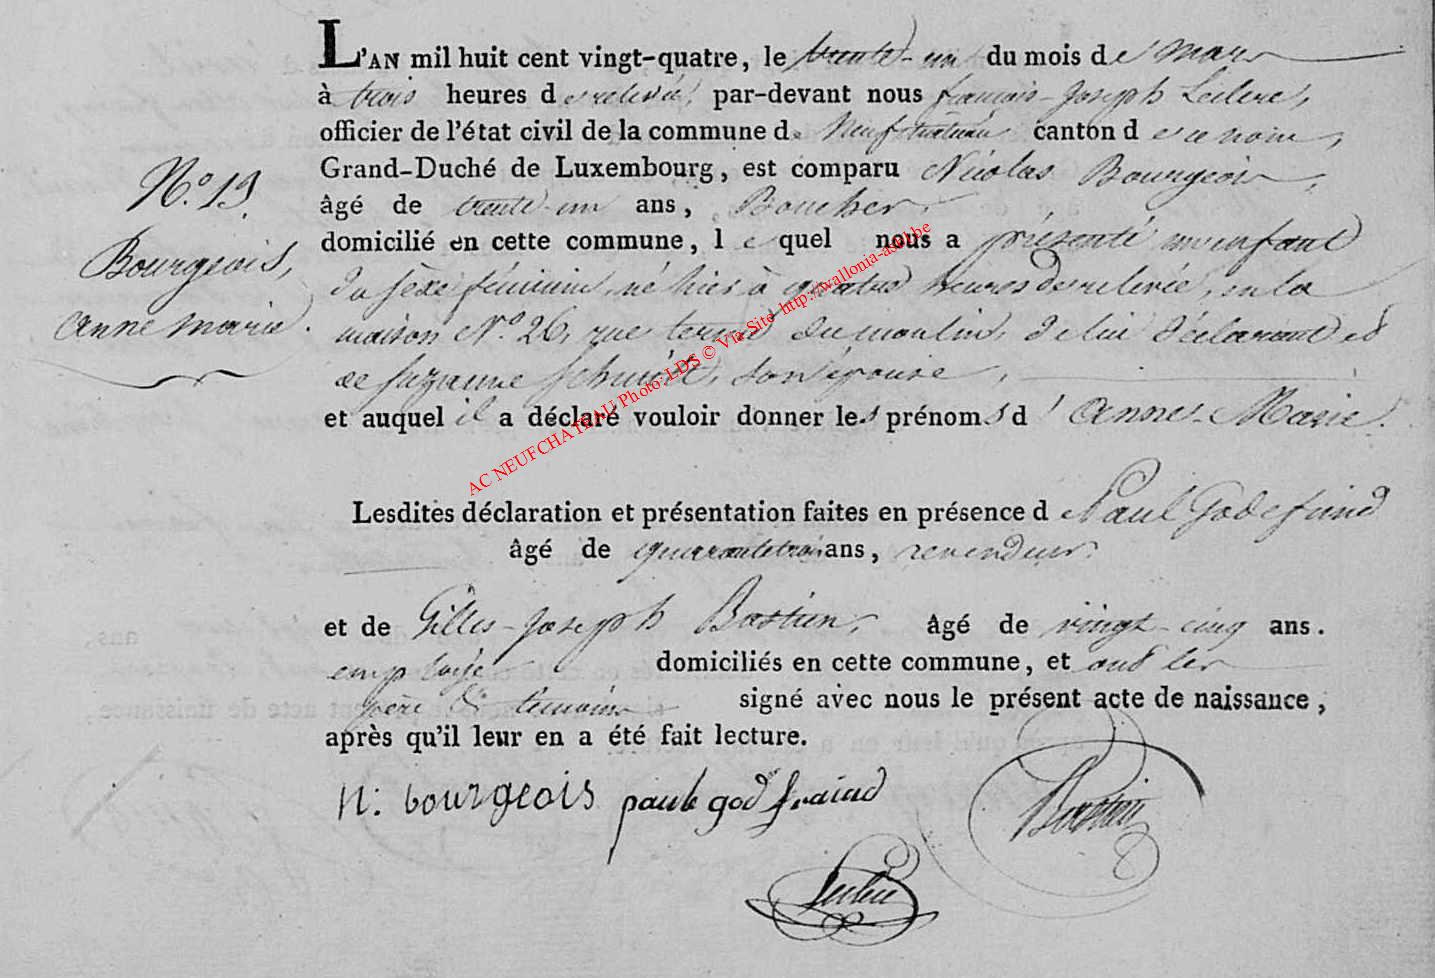 L'AN mil huit cent vingt-quatre, le trente-un du mois de mars
à trois heures de relevée, par-devant nous françois-Joseph Leclerc,
officier de l'état civil de la commune de Neufchateau canton de ce nom,
Grand-Duché de Luxembourg, est comparu Nicolas Bourgeois,
N.º 19.
âgé de trente-un ans, Boucher,
domicilié en cette commune, lequel nous a présenté un enfant
Bourgeois,
du sexe féminin, né hier à quatre heures de relevée, en la
anne marie
maison Nº 26, rue du moulin, de lui déclarant et
de Suzanne Schmidt, son épouse,
et auquel il a déclaré vouloir donner les prénoms d' Anne-Marie.
AC NEUFCHATEAU Photo: LDS © Via Site http://wallonia-asbl.be
Lesdites déclaration et présentation faites en présence d Paul Godefrind
âgé de quarante trois ans, revendeur.
et de Gilles-Joseph Bastien, âgé de vingt-cinq ans.
employé domiciliés en cette commune, et ont les
père & témoins signé avec nous le présent acte de naissance,
après qu'il leur en a été fait lecture.
N: bourgeois paul godfraind Bastien
Leclerc